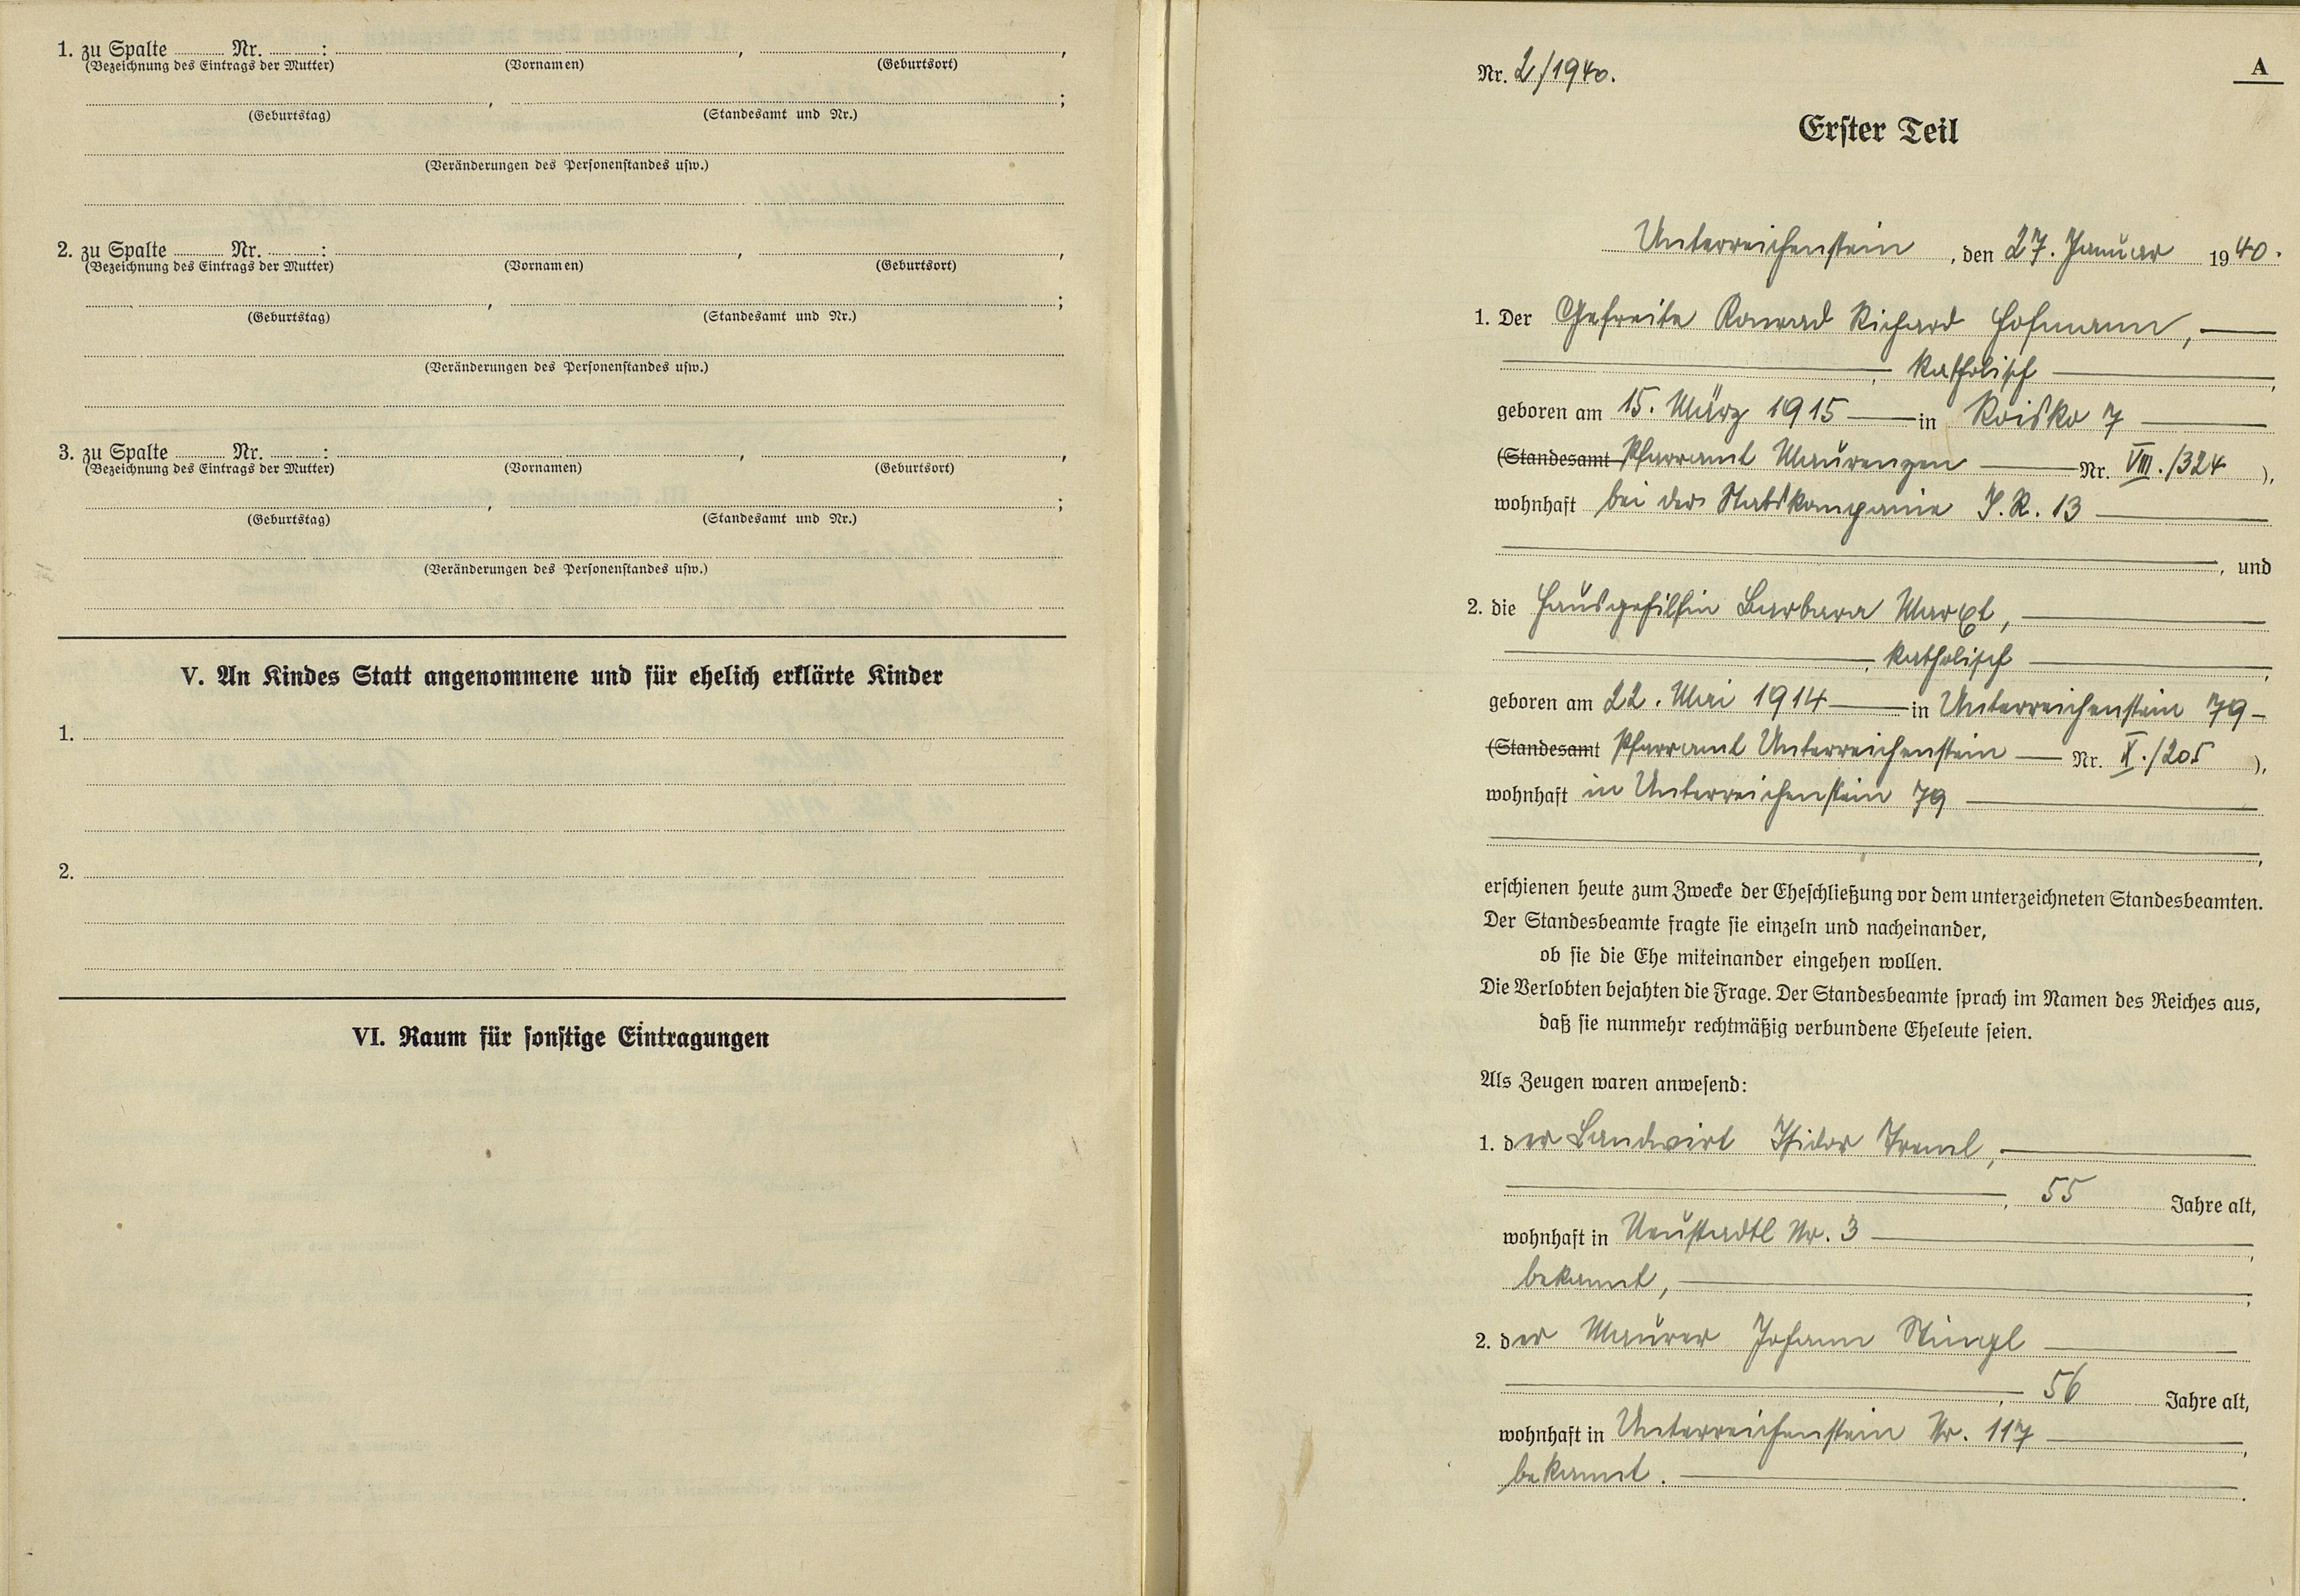 1. zu Spalte ........ Nr. ........ : ........ , ........ ,
(Bezeichnung des Eintrags der Mutter) (Vornamen) (Geburtsort)
........ , ........ ;
(Geburtstag) (Standesamt und Nr.)
(Veränderungen des Personenstandes usw.)
2. zu Spalte ........ Nr. ........ : ........ , ........ ,
(Bezeichnung des Eintrags der Mutter) (Vornamen) (Geburtsort)
........ , ........ ;
(Geburtstag) (Standesamt und Nr.)
(Veränderungen des Personenstandes usw.)
3. zu Spalte ........ Nr. ........ : ........ , ........ ,
(Bezeichnung des Eintrags der Mutter) (Vornamen) (Geburtsort)
........ , ........ ;
(Geburtstag) (Standesamt und Nr.)
(Veränderungen des Personenstandes usw.)
V. An Kindes Statt angenommene und für ehelich erklärte Kinder
1.
2.
VI. Raum für sonstige Eintragungen
A
Nr. 2/1940.
Erster Teil
Unterreichenstein, den 27. Januar 1940.
1. Der Gefreite Konrad Richard Hofmann,
, katholisch ,
geboren am 15. März 1915 in Roisko 7
(Standesamt Pfarramt Maurenzen Nr. VIII./324 ),
wohnhaft bei der Stabskompanie J. R. 13
, und
2. die Hausgehilfin Barbara Marxt,
, katholisch ,
geboren am 22. Mai 1914 in Unterreichenstein 79
(Standesamt Pfarramt Unterreichenstein Nr. X./205 ),
wohnhaft in Unterreichenstein 79
,
erschienen heute zum Zwecke der Eheschließung vor dem unterzeichneten Standesbeamten.
Der Standesbeamte fragte sie einzeln und nacheinander,
ob sie die Ehe miteinander eingehen wollen.
Die Verlobten bejahten die Frage. Der Standesbeamte sprach im Namen des Reiches aus,
daß sie nunmehr rechtmäßig verbundene Eheleute seien.
Als Zeugen waren anwesend:
1. der Landwirt Isidor Treml,
, 55 Jahre alt,
wohnhaft in Neustadtl Nr. 3 ,
bekannt, ;
2. der Maurer Johann Stingl
, 56 Jahre alt,
wohnhaft in Unterreichenstein Nr. 117 ,
bekannt. .